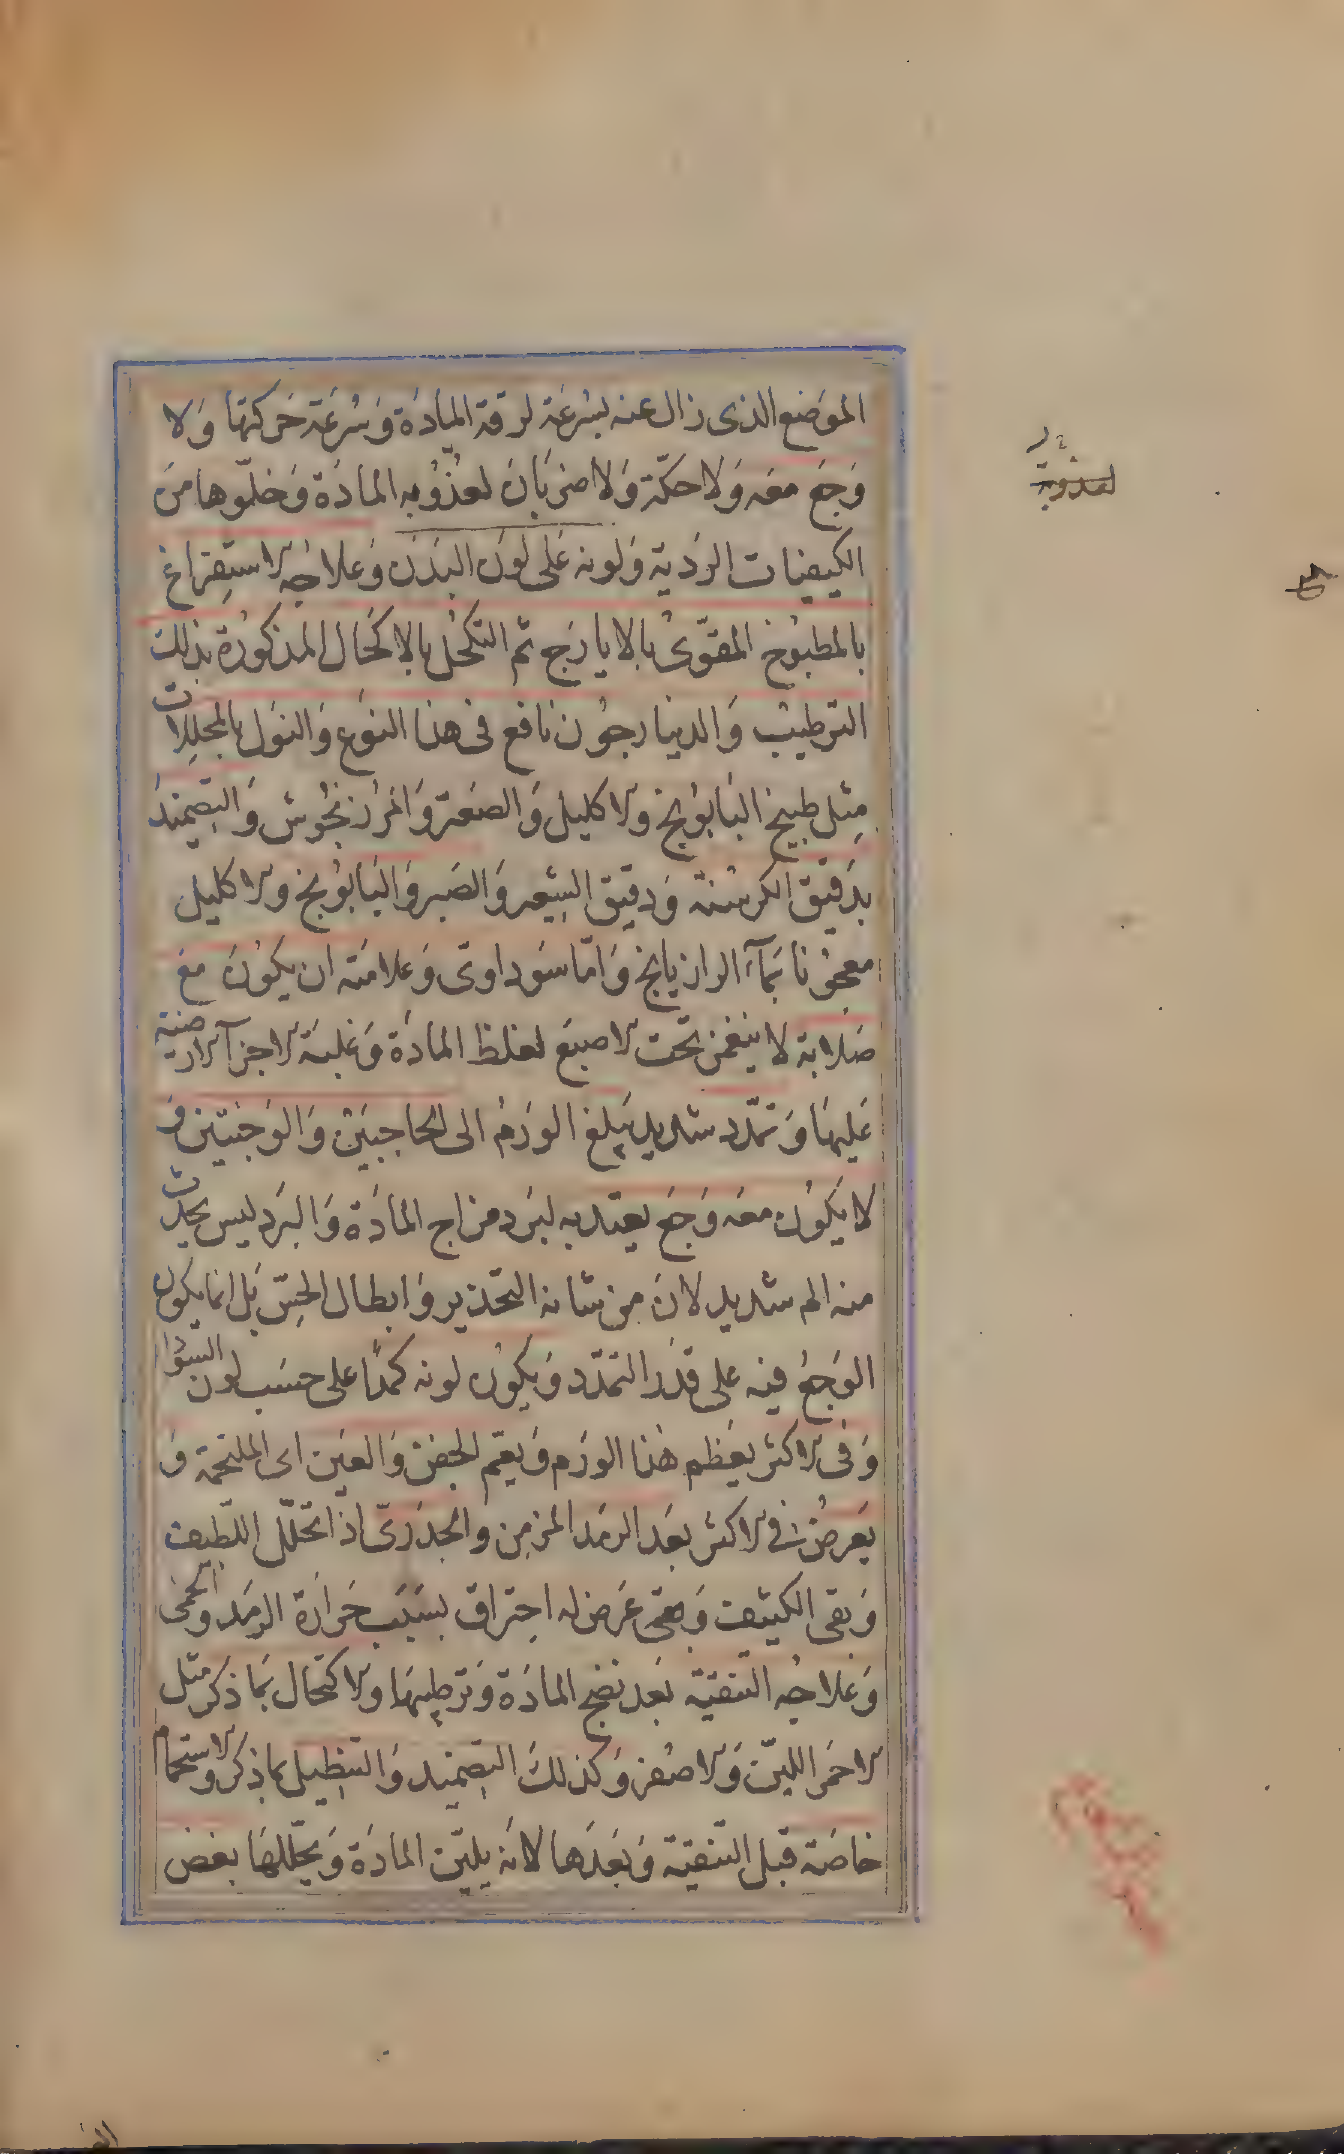 الموضع الذى زال عنه بسرعة لرقة المادة وسرعة حركتها ولا
وجع معه ولا حكّة ولا ضربان لعذوبه المادة وخلّوها من
الكيفيات الردية ولونه على لون البدن وعلاجه الاستفراغ
بالمطبوخ المقوّى بالايارج ثم التكحل بالاكحال المذكورة بذلك
الترطيب والدينارجون نافع فى هذا النوع والنول بالمحللات
مثل طبيخ البابونج والاكليل والصعتر والمرزنجوش والتضميد
بدقيق الكرسنة ودقيق الشعير والصبر والبابونج والاكليل
معجونا بمآء الرازيانج وامّا سوداوى وعلامته ان يكون مع
صلابة لا ينغمز تحت الاصبع لغلظ المادة وغلبة الاجزآ الارضية
عليها وتمدّد شديد يبلغ الورم الى الحاجبين والوجنتين و
لا يكون معه وجع يعتد به لبرد مزاج المادة والبرد ليس يحدث
منه الم شديد لان من شانه التخدير وابطال الحسّ بل انما يكون
الوجع فيه على قدر التمدّد ويكون لونه كمدًا على حسب لون السودا
وفى الاكثر يعظم هذا الورم ويعمّ الجفن والعين اى الملتحمة و
يعرض فى الاكثر بعد الرمد المزمن والجدرىّ اذا تحلّل اللّطيف
وبقى الكثيف وبقى عرض له احتراق بسبب حرارة الرمد والحمى
وعلاجه التنقية بعد نضج المادة وترطيبها والاكتحال بما ذكر مثل
الاحمر الليّن والاصفر وكذلك التضميد والتنطيل بما ذكر والاستحمام
خاصّة قبل التنقية وبعدها لانه يليّن المادة ويحلّلها بعض
لعذوبة